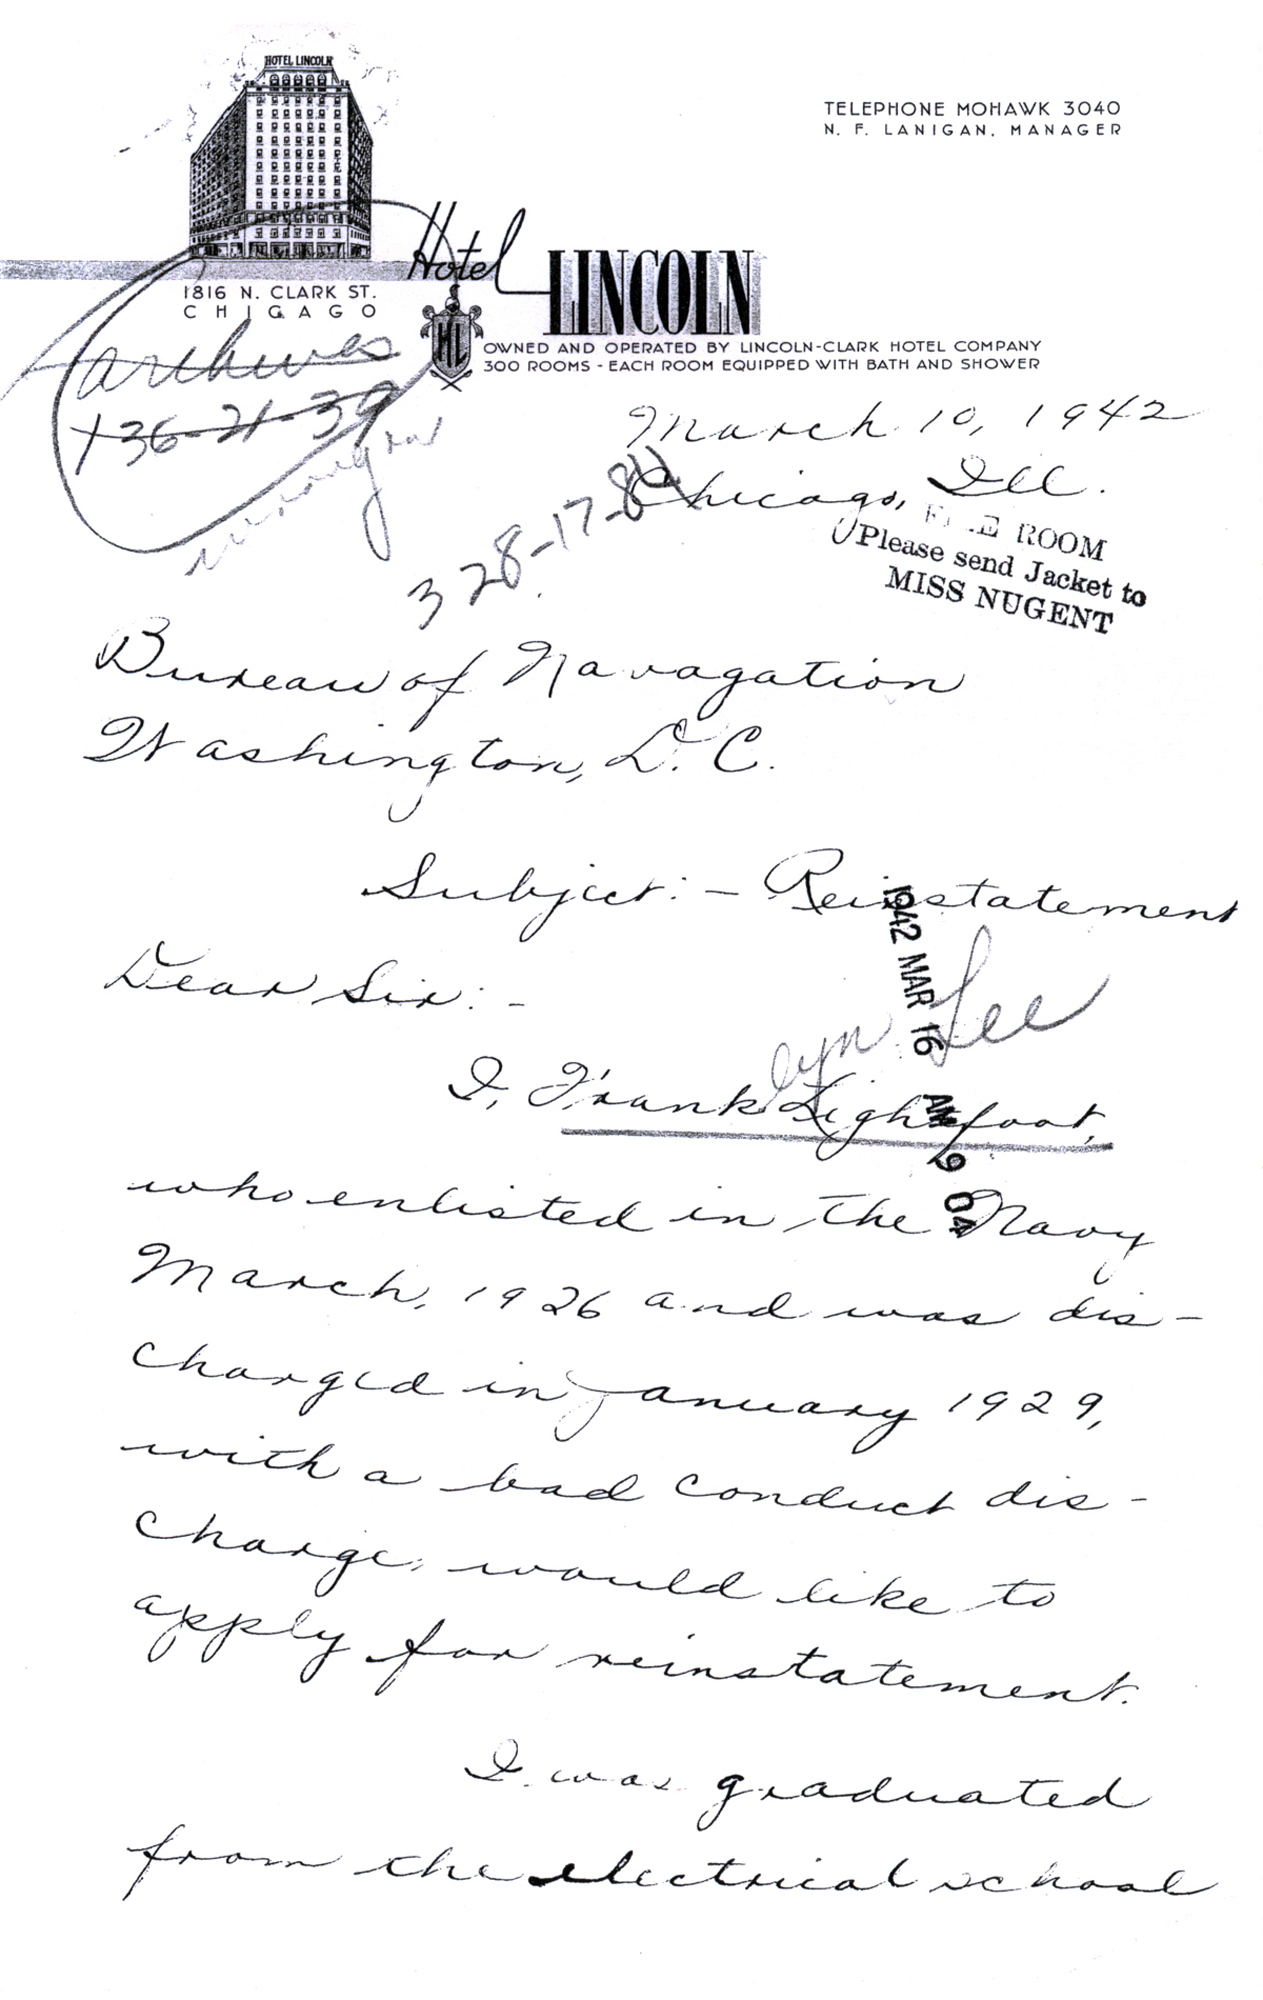 HOTEL LINCOLN
TELEPHONE MOHAWK 3040
N. F. LANIGAN, MANAGER
Hotel LINCOLN
1816 N. CLARK ST.
CHICAGO
HL
OWNED AND OPERATED BY LINCOLN-CLARK HOTEL COMPANY
300 ROOMS - EACH ROOM EQUIPPED WITH BATH AND SHOWER
archives
136-21-39
wrong
March 10, 1942
328-17-84
Chicago, Ill.
FILE ROOM
Please send Jacket to
MISS NUGENT
Bureau of Navagation
Washington, D.C.
Subject:- Reinstatement
1942 MAR 16 AM 9 04
Dear Sir:-
Lee
I, Frank Lightfoot,
who enlisted in the Navy
March, 1926 and was dis-
charged in January 1929,
with a bad conduct dis-
charge, would like to
apply for reinstatement.
I was graduated
from the electrical school